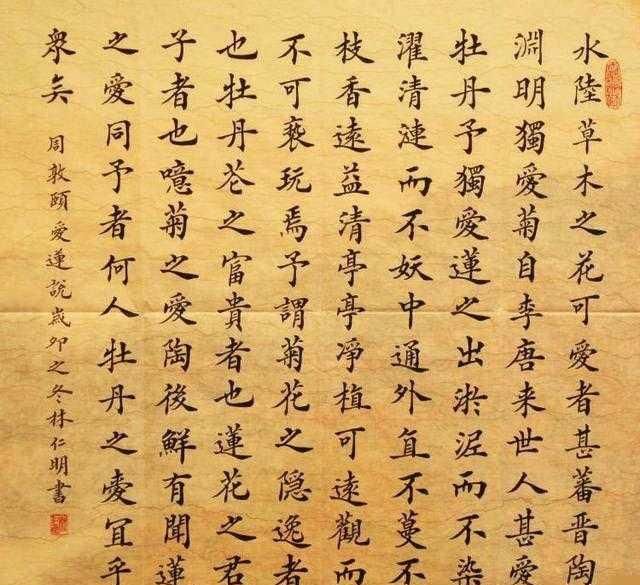 水陸草木之花可愛者甚蕃晉陶
淵明獨愛菊自李唐来世人甚愛
牡丹予獨愛蓮之出淤泥而不染
濯清漣而不妖中通外直不蔓不
枝香遠益清亭亭凈植可遠觀而
不可褻玩焉予謂菊花之隱逸者
也牡丹花之富貴者也蓮花之君
子者也噫菊之愛陶後鮮有聞蓮
之愛同予者何人牡丹之愛宜乎
衆矣
周敦頤愛蓮說歲卯之冬林仁明書